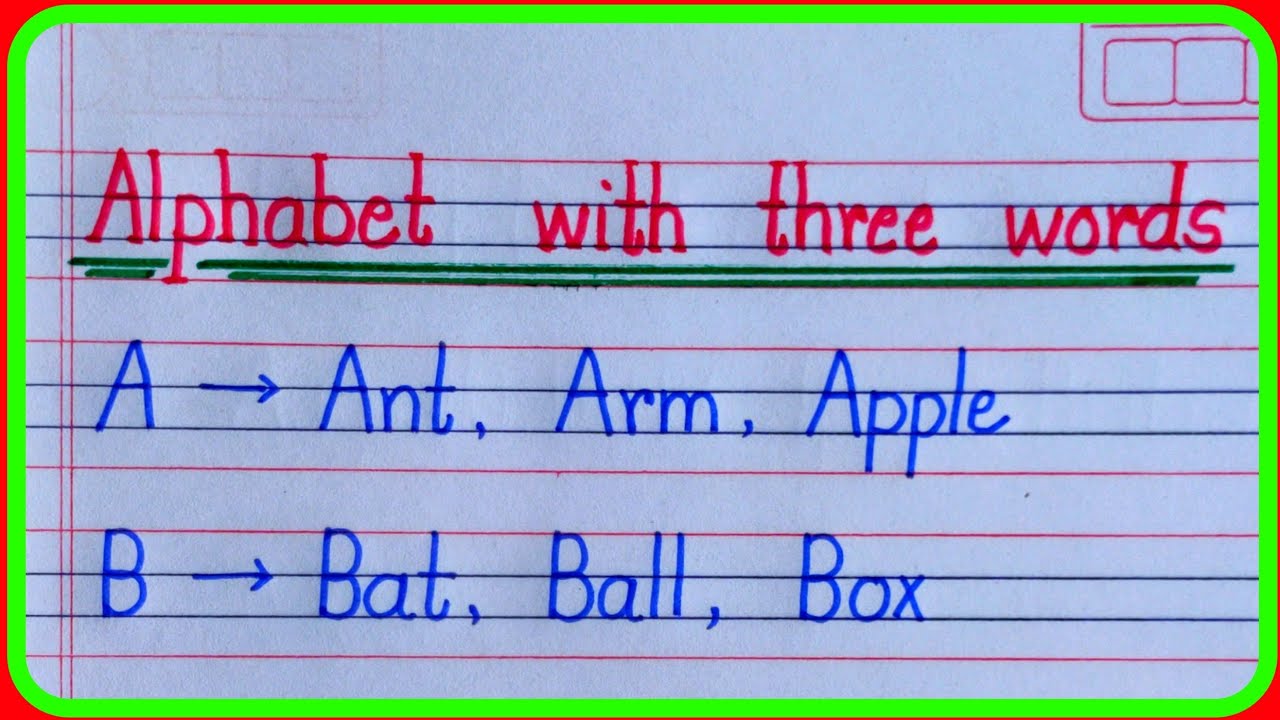 Alphabet with three words
A → Ant, Arm, Apple
B → Bat, Ball, Box